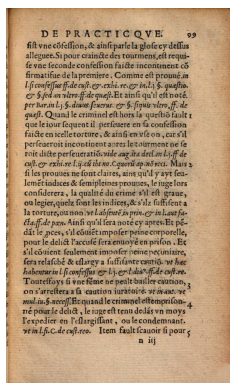 DE PRACTICQVE. 99
fist vne cõfession, & ainsi parle la glose cy dessus
alleguee. Si pour crainte des tourmens, est requi-
se vne seconde confession faicte incontinent cõ
firmatifue de la premiere. Comme est prouué in
l. si confessus ff. de cust. & exhi. re. & in l. j. §. quæstio.
& §. sed an vltro ff. de quæst. Et ainsi qu'il est noté
per Bar. in l. j. §. diuus seuerus. & §. si quis vltro. ff. de
quæst. Quand le criminel est hors la questiõ faut
que le iour sequent il perseuere en sa confession
faicte en icelle torture, & ainsi en vse on, car s'il
perseueroit incontinent apres le tourment ne se-
roit dicte perseuerãce
Mais
si les preuues ne sont claires, ains qu'il y ayt seu-
lemẽt indices & semiplenes preuues, le iuge lors
considerera, la qualité du crime s'il est graue,
ou legier, quelz sont les indices, & s'ilz suffisent a
la torture, ou non
Ainsi qu'il sera noté cy apres. Et pẽ-
dãt le pces, s'il cõuiẽt imposer peine corporelle,
pour le delict l'accusé sera enuoyé en prison. Et
s'il cõuient seulement imposer peine pecuniaire,
sera relasché & eslargy a suffisante cautiõ. vt hæc
habentur in l. si confessus & l. j. & l. diu? ff. de cust. re.
Toutesfoys si vne fẽme ne peult bailler caution,
on s'arrestera a sa caution iuratoire.
Et quand le criminel est emprison-
né pour le delict, le iuge est tenu dedãs vn moys
l'expedier en l'eslargissant, ou le condemnant.
vt in l. fi. C. de cust. reo. Item fault sçauoir si pour
n iij